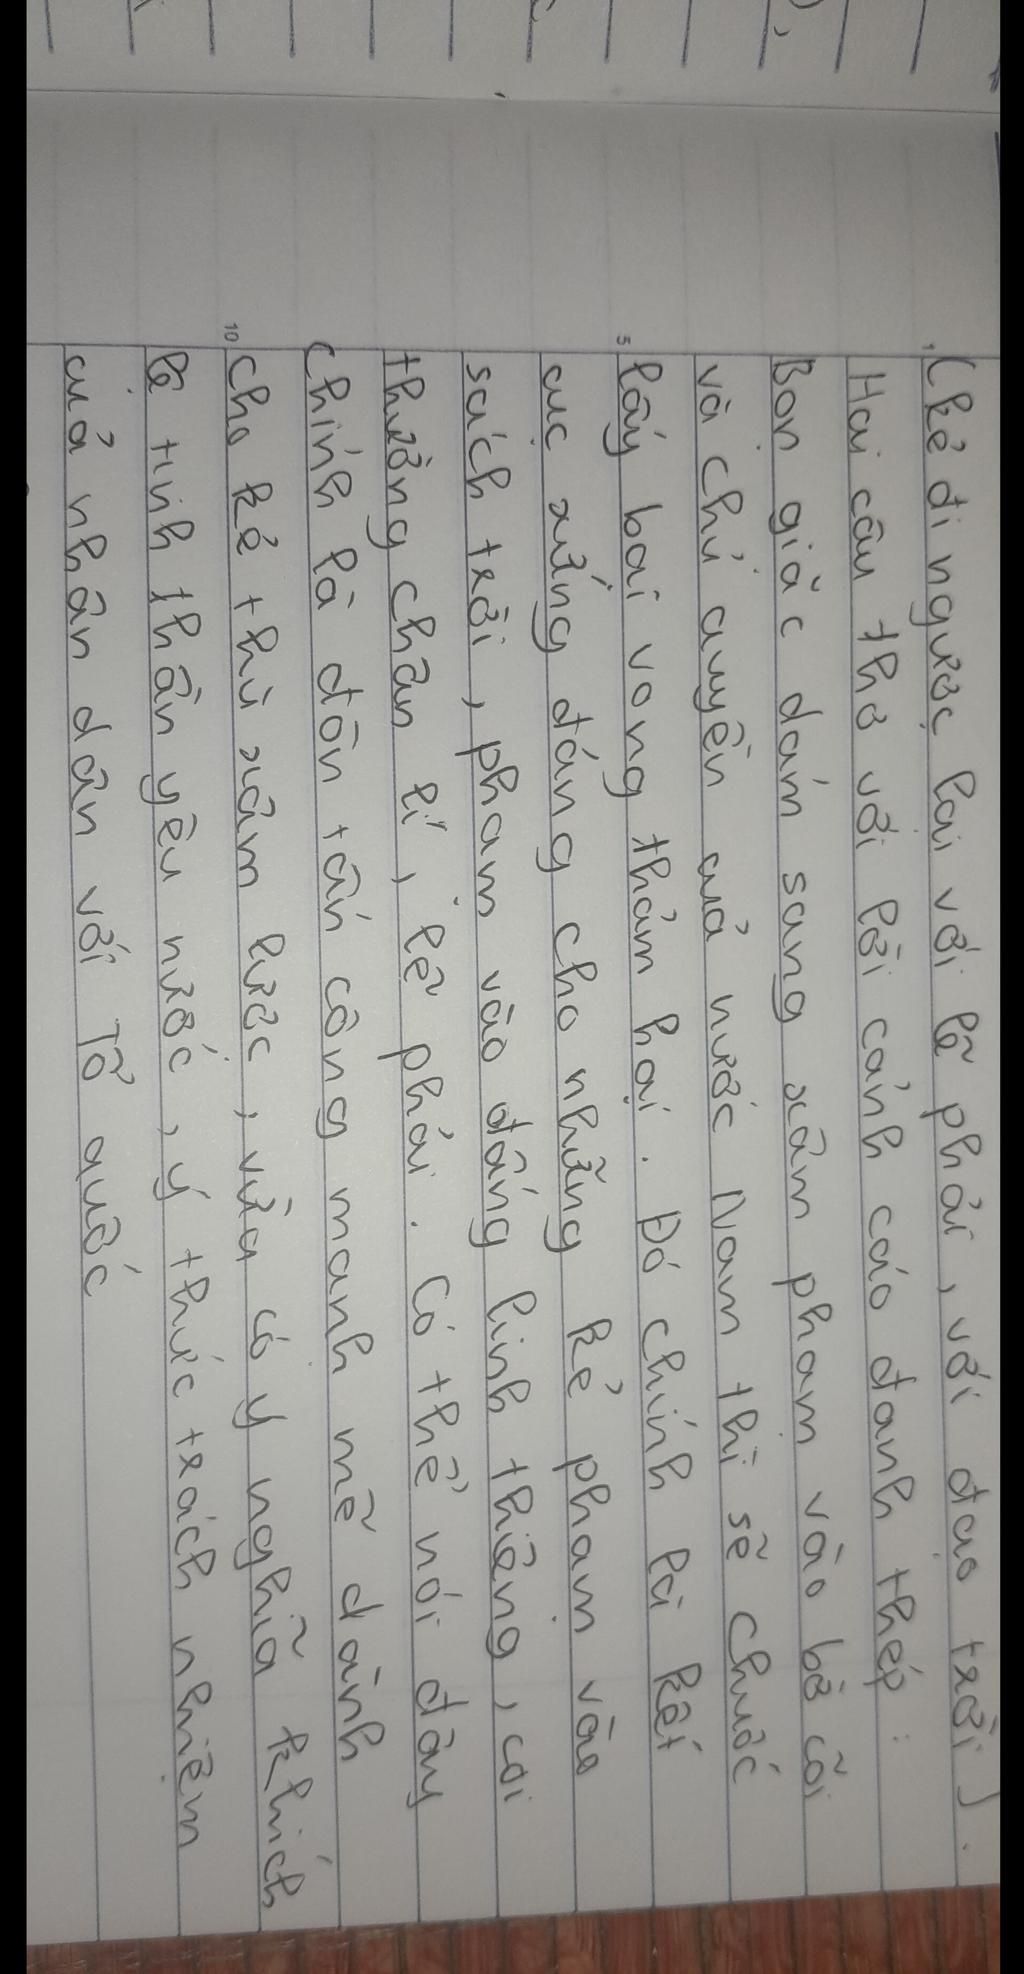 (kẻ đi ngược lại với lẽ phải, với đạo trời).
Hai câu thơ với lời cảnh cáo đanh thép:
Bọn giặc dám sang xâm phạm vào bờ cõi
và chủ quyền quả nước Nam thì sẽ chuốc
lấy bại vong thảm hại. Đó chính là kết
cục xứng đáng cho những kẻ phạm vào
sách trời, phạm vào đấng linh thiêng, coi
thường chân lí, lẽ phải. Có thể nói đây
chính là đòn tấn công mạnh mẽ dành
cho kẻ thù xâm lược, vừa có ý nghĩa khích
lệ tinh thần yêu nước, ý thức trách nhiệm
của nhân dân với Tổ quốc